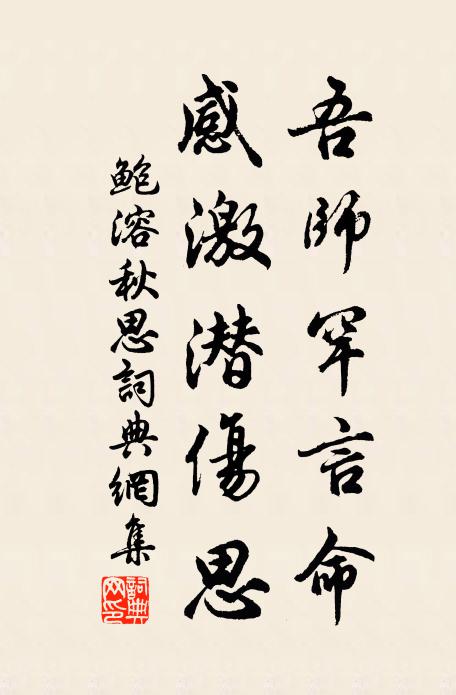 吾師罕言命
感激潜傷思
鮑溶秋思詞典網集
詞典
网印